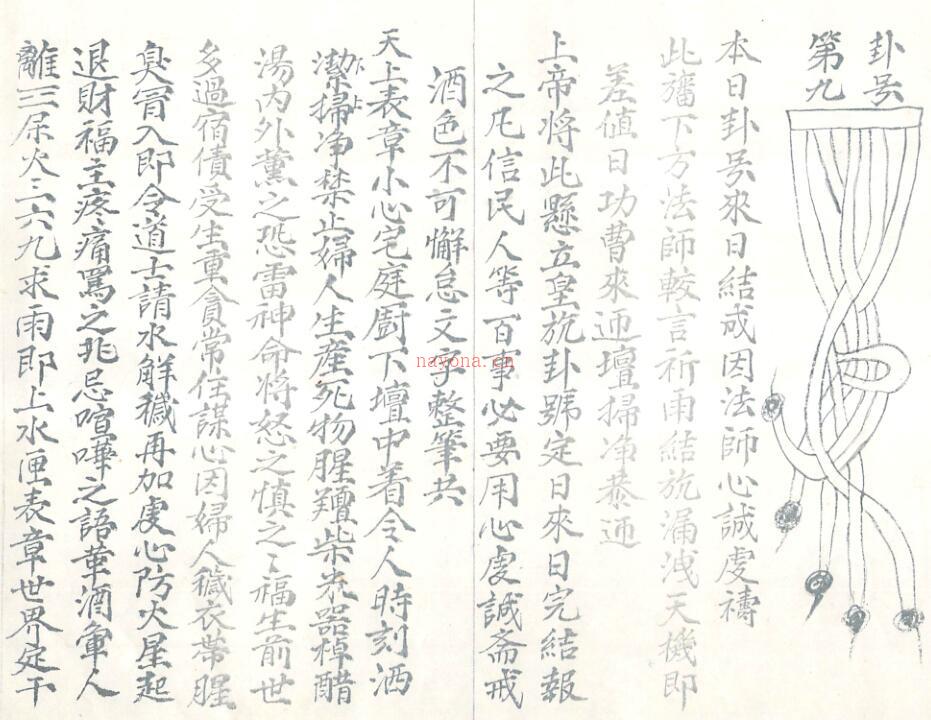 卦号
第九
本日卦号來日結成因法師心誠虔禱
此旛下方法師較言祈雨結旒漏洩天機即
差值日功曹來迊壇掃净恭迊
上帝將此懸立皇旒卦號定日來日完結報
之凢信民人等百事必要用心虔誠斋戒
酒色不可懈怠文字整筆共
天上表章小心宅庭廚下壇中着令人時刻洒
潔掃净禁止婦人生產死物腥羶柴米器棹醋
湯內外薰之恐雷神命將怒之慎之〻福生前世
多過宿債受生重貪常住謀心因婦人穢衣帶腥
臭冐入即令道士請水解穢再加虔心防火星起
退財福主疼痛罵之非忌喧嘩之語葷酒輩人
離三尿火三六九求雨即上水匣表章世界定干
nayona.cn